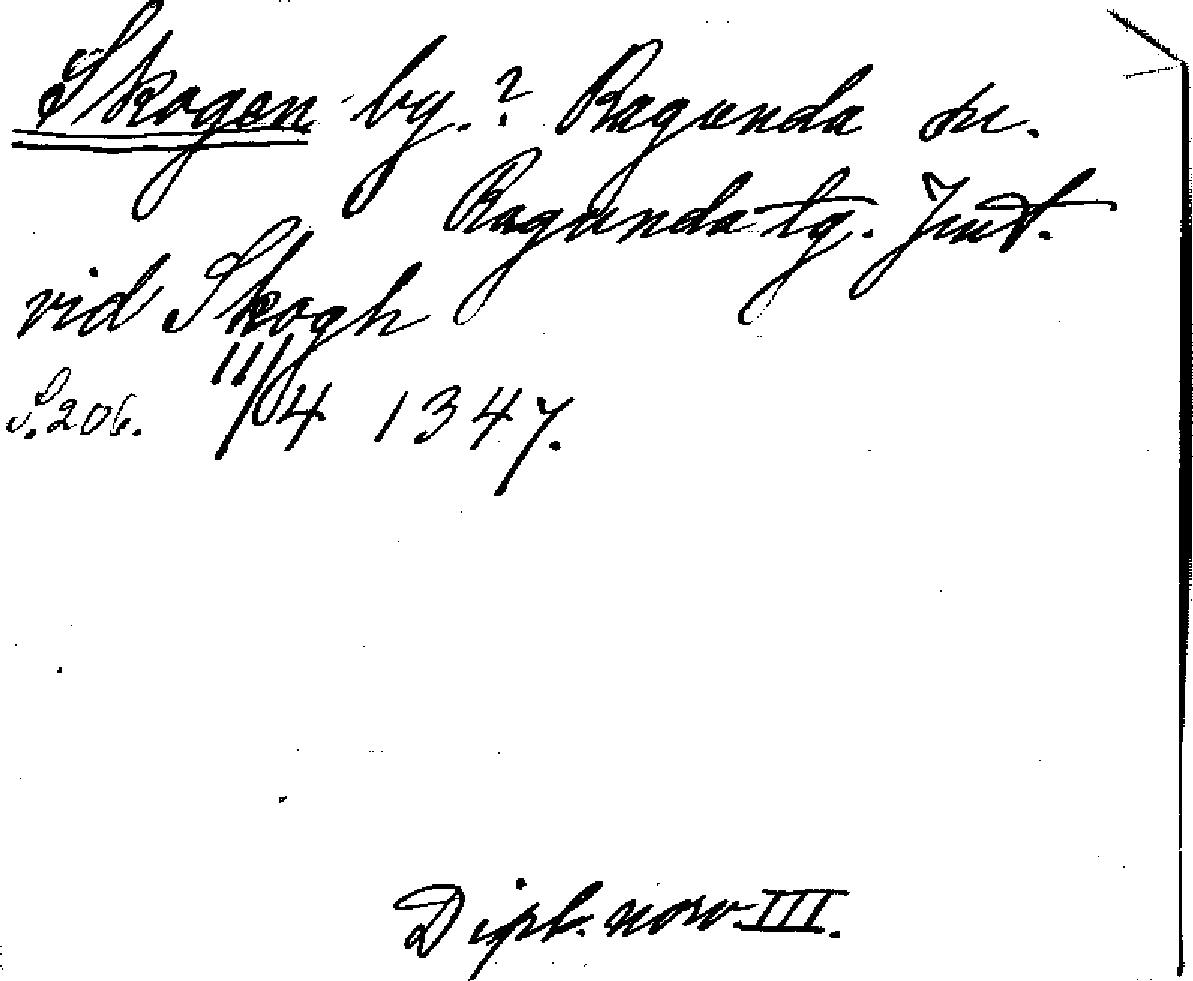 Skogen by.? Ragunda sn.
Ragunda tg. Jmtl.
vid Skogh
S. 206. 11/4 1347.
Dipl. norv. III.